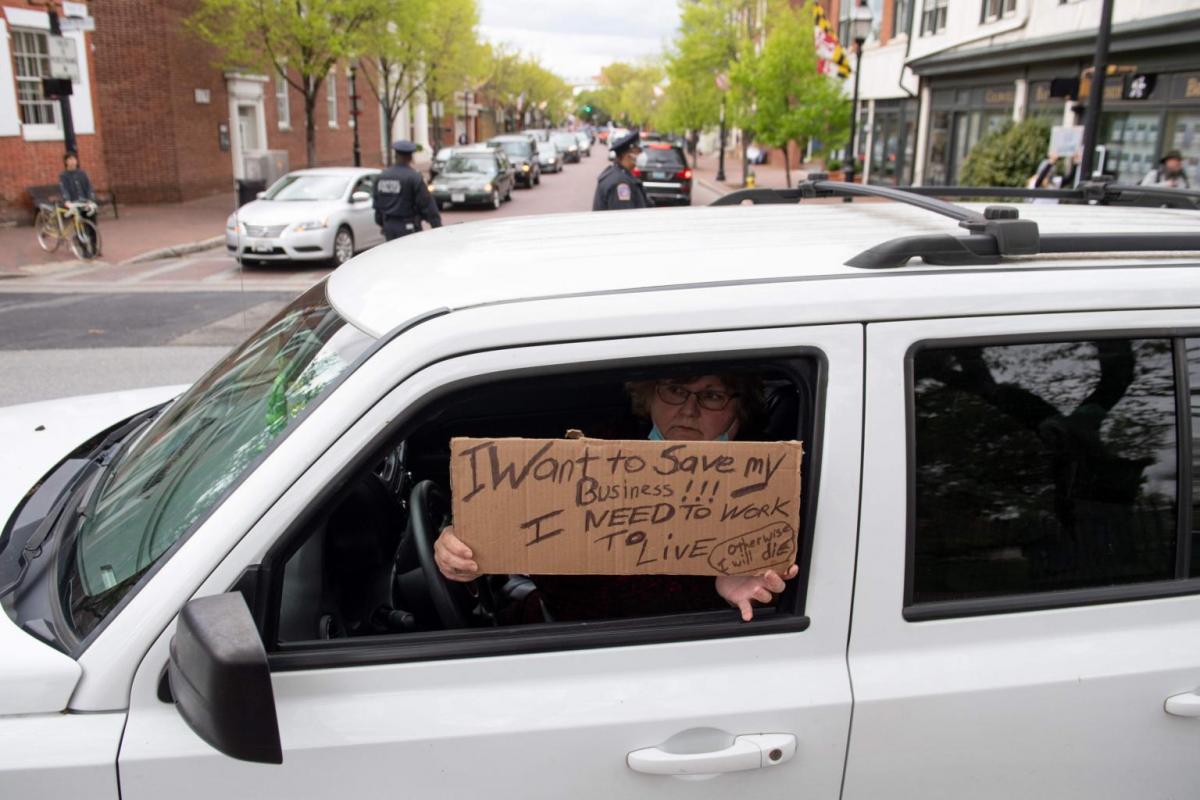 I Want to Save my
Business!!!
I NEED TO WORK
TO LIVE (otherwise
I will die)